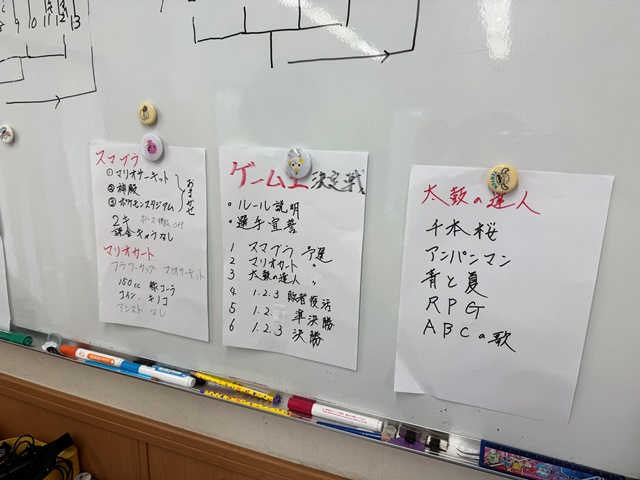 8 9 10 11 12 13
スマブラ
①マリオサーキット
②神殿
③ポケモンスタジアム
おまかせ
2キ
課金キャラなし
マリオカート
フラワーカップ マリオサーキット
150cc
コイン キノコ
アシスト なし
ゲーム王決定戦
・ルール説明
・選手宣誓
1 スマブラ 予選
2 マリオカート 〃
3 太鼓の達人 〃
4 1.2.3 敗者復活
5 1.2. 準決勝
6 1.2.3 決勝
太鼓の達人
千本桜
アンパンマン
青と夏
RPG
ABCの歌